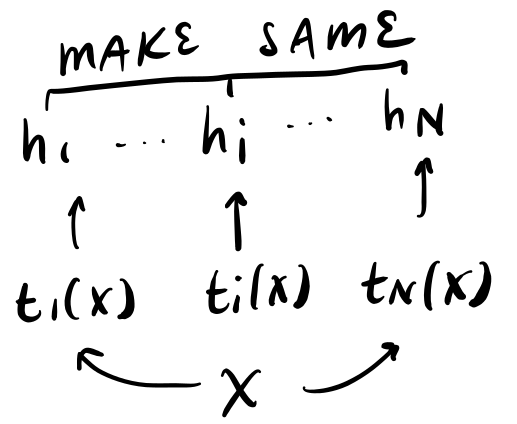 MAKE SAME
h₁ ... hᵢ ... h_N
t₁(x) tᵢ(x) t_N(x)
x